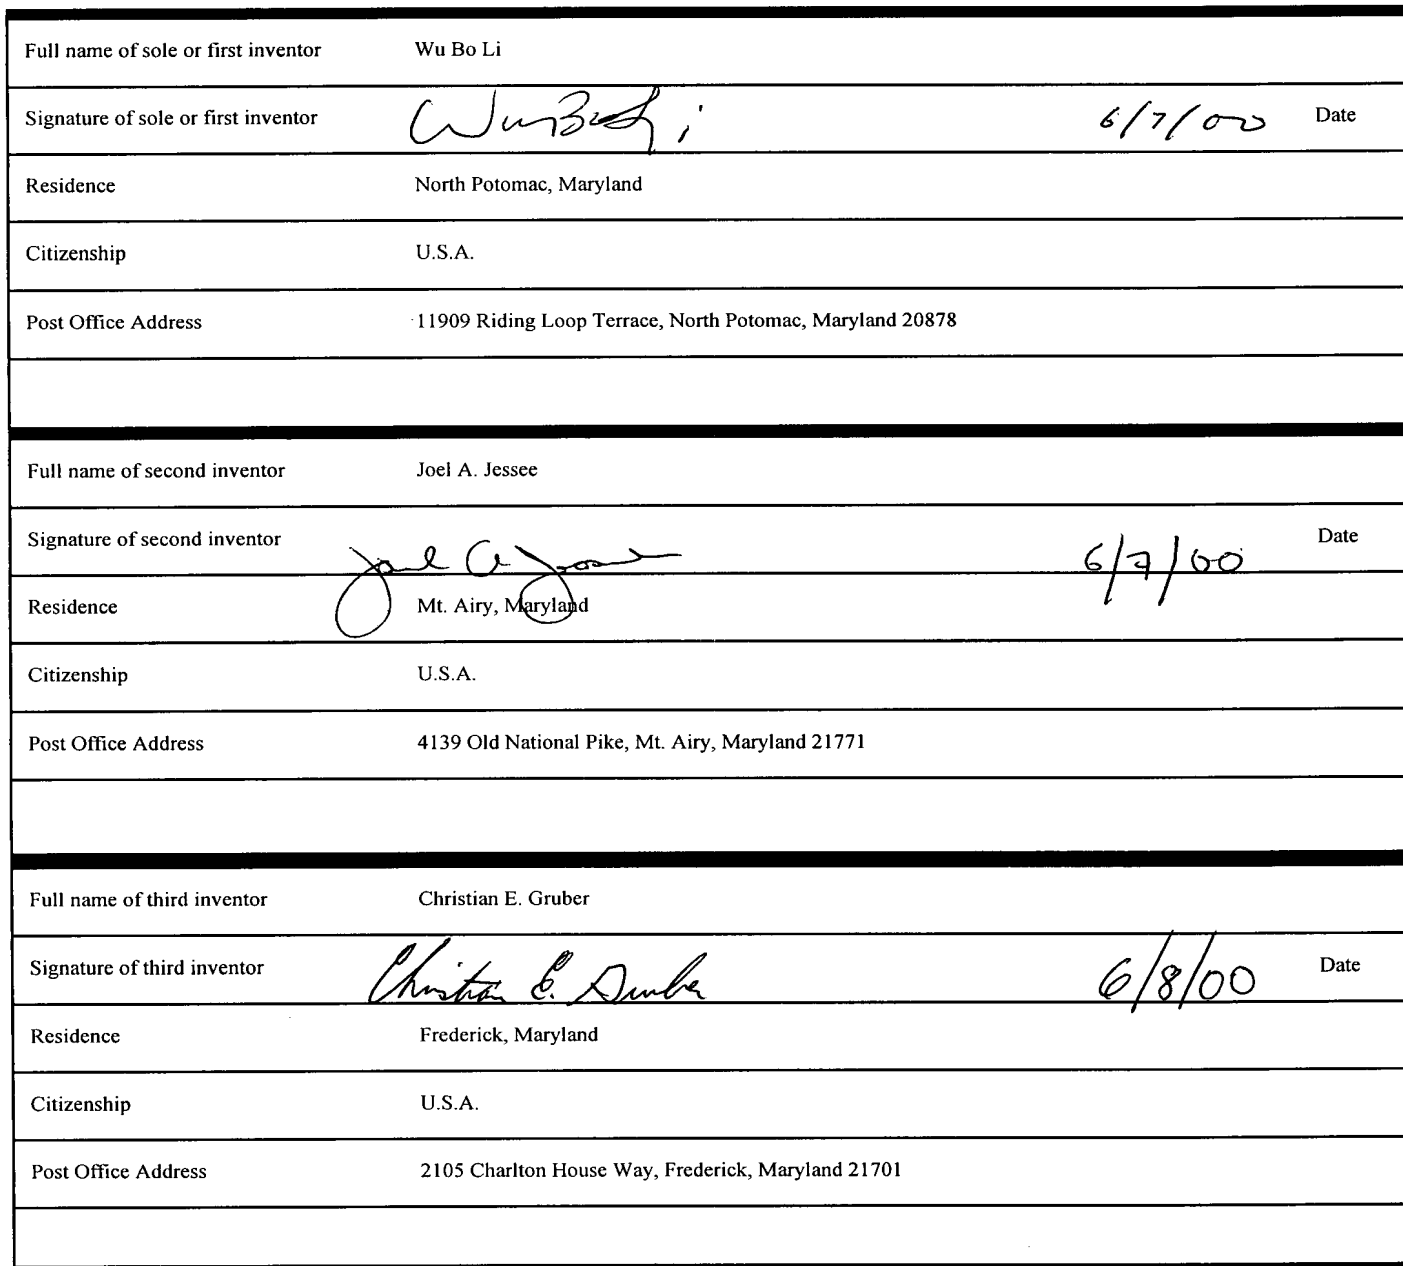 Full name of sole or first inventor Wu Bo Li
Signature of sole or first inventor Wu Bo Li 6/7/00 Date
Residence North Potomac, Maryland
Citizenship U.S.A.
Post Office Address 11909 Riding Loop Terrace, North Potomac, Maryland 20878
Full name of second inventor Joel A. Jessee
Signature of second inventor Joel A Jessee 6/7/00 Date
Residence Mt. Airy, Maryland
Citizenship U.S.A.
Post Office Address 4139 Old National Pike, Mt. Airy, Maryland 21771
Full name of third inventor Christian E. Gruber
Signature of third inventor Christian E. Gruber 6/8/00 Date
Residence Frederick, Maryland
Citizenship U.S.A.
Post Office Address 2105 Charlton House Way, Frederick, Maryland 21701